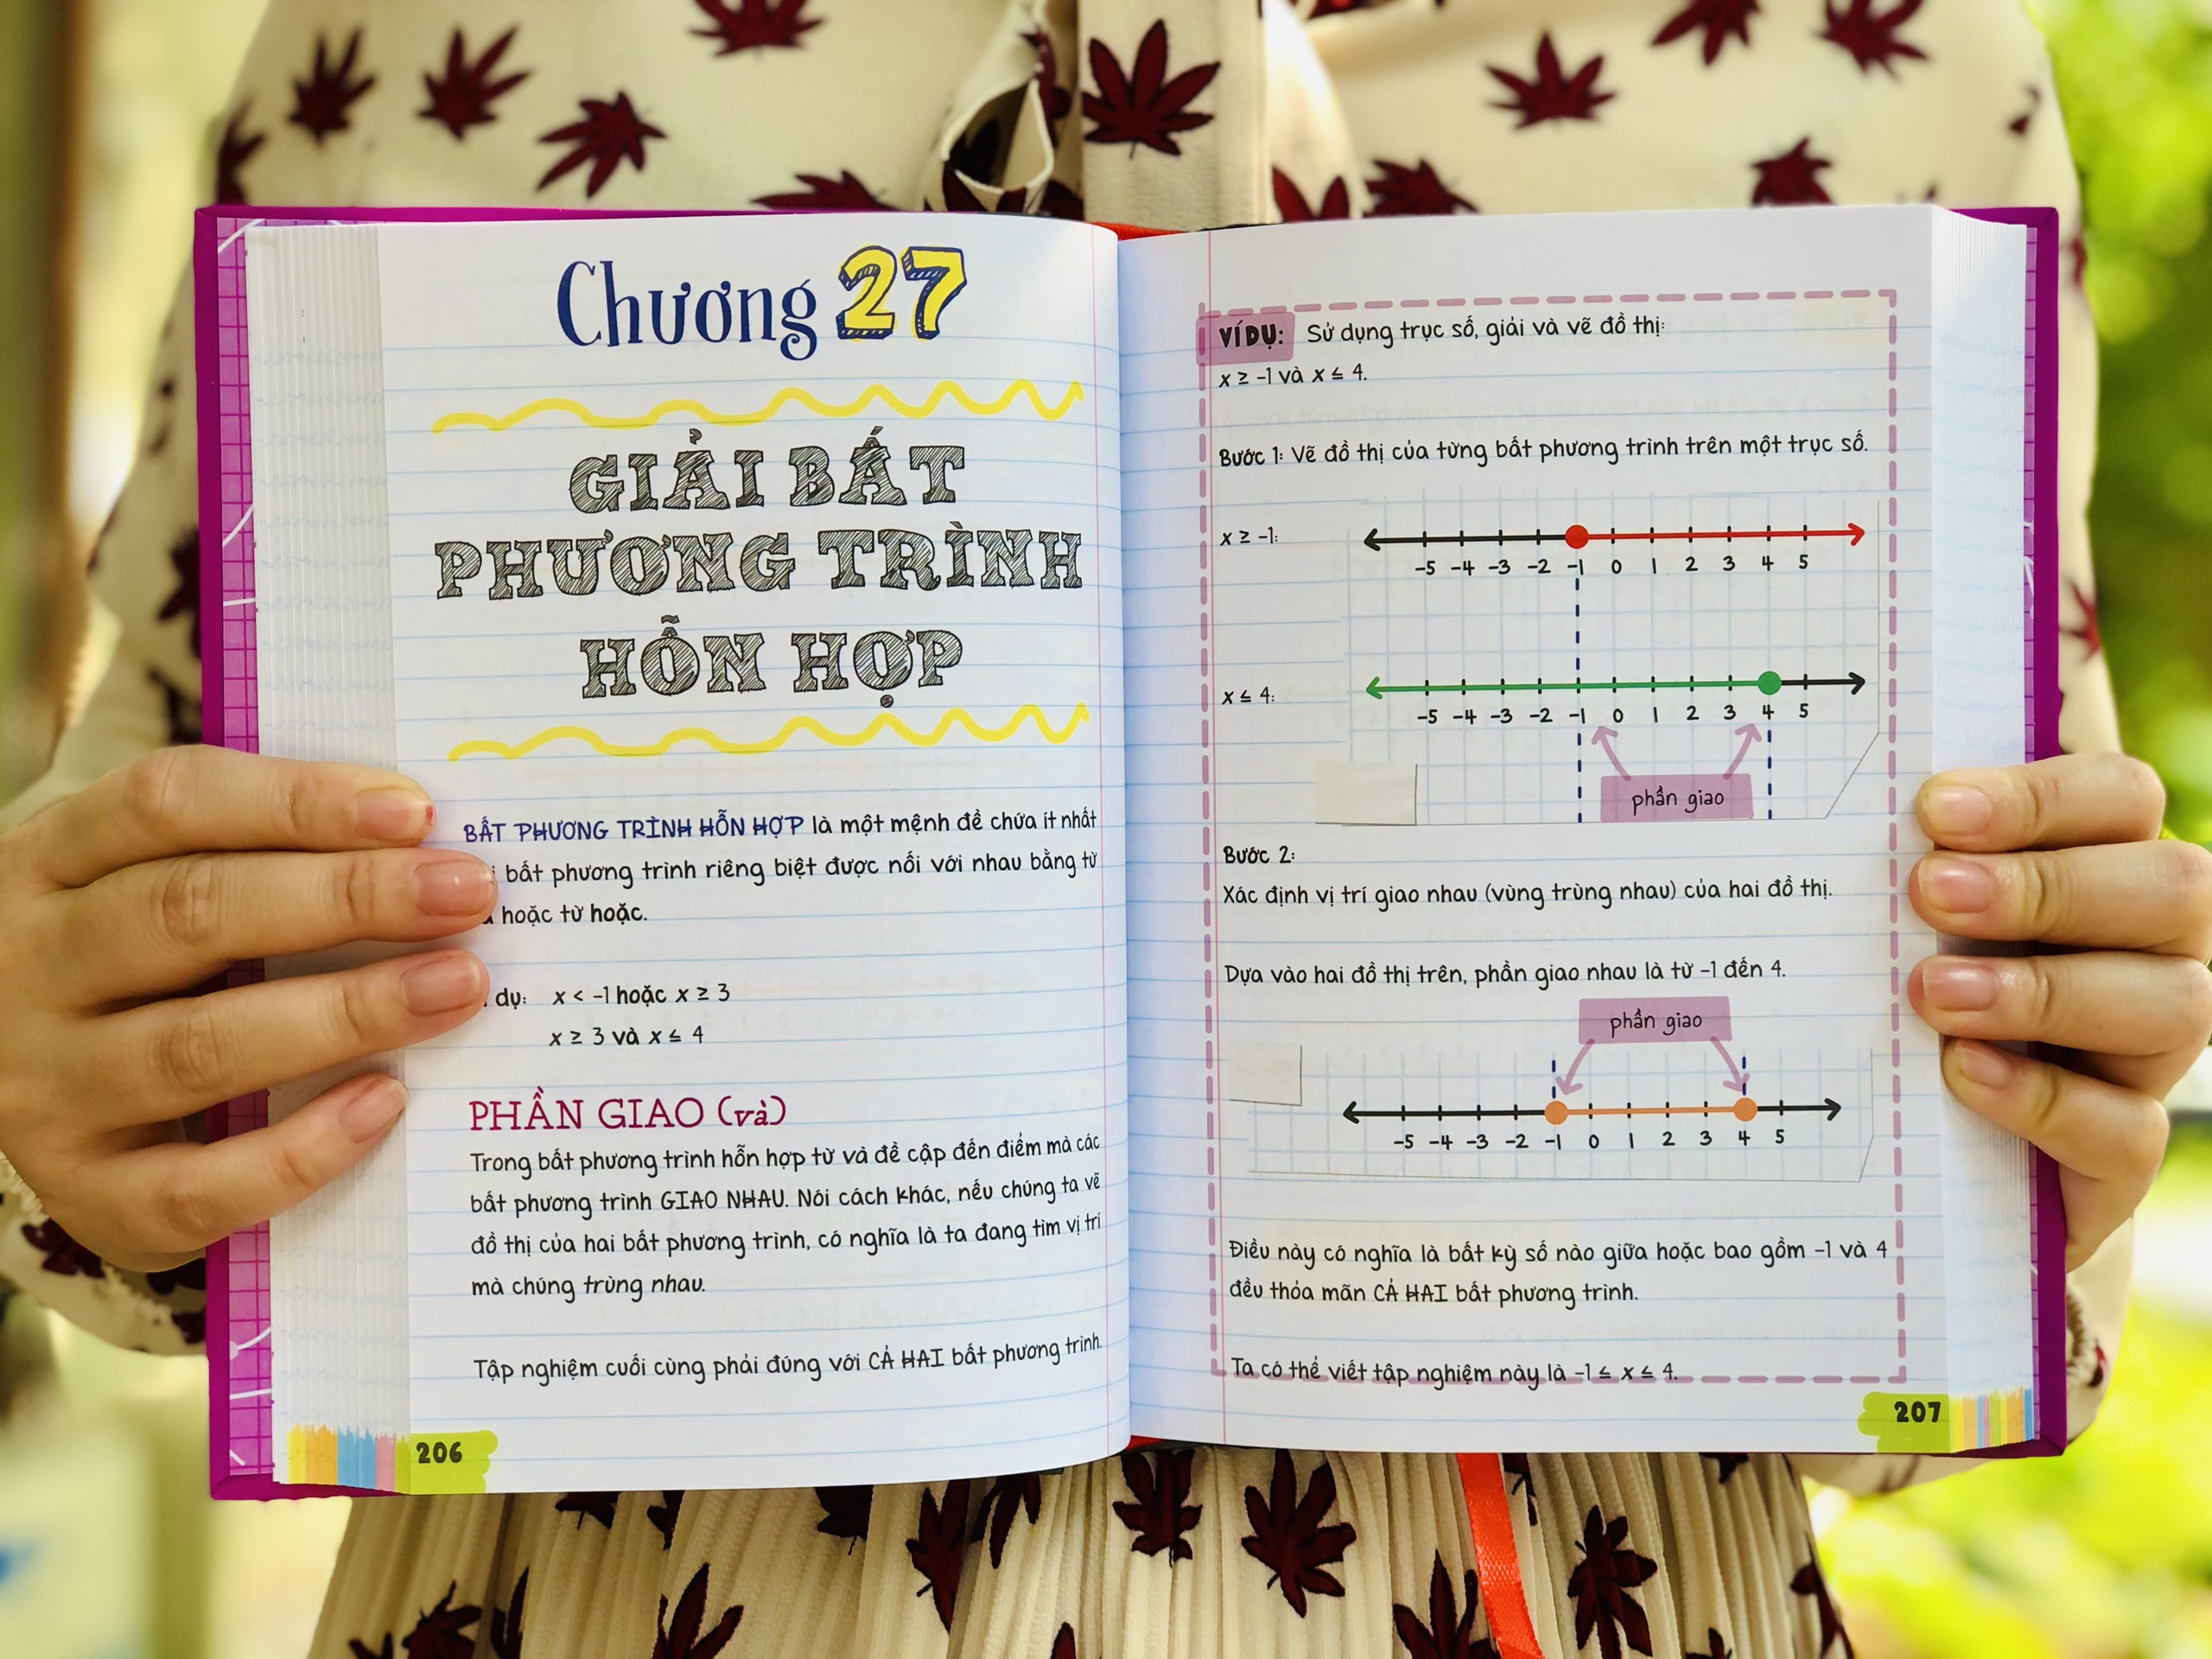 Chương 27
GIẢI BẤT
PHƯƠNG TRÌNH
HỖN HỢP
BẤT PHƯƠNG TRÌNH HỖN HỢP là một mệnh đề chứa ít nhất
bất phương trình riêng biệt được nối với nhau bằng từ
hoặc từ hoặc.
dụ: x < -1 hoặc x ≥ 3
x ≥ 3 và x ≤ 4
PHẦN GIAO (và)
Trong bất phương trình hỗn hợp từ và đề cập đến điểm mà các
bất phương trình GIAO NHAU. Nói cách khác, nếu chúng ta vẽ
đồ thị của hai bất phương trình, có nghĩa là ta đang tìm vị trí
mà chúng trùng nhau.
Tập nghiệm cuối cùng phải đúng với CẢ HAI bất phương trình.
206
VÍ DỤ: Sử dụng trục số, giải và vẽ đồ thị:
x ≥ -1 và x ≤ 4.
Bước 1: Vẽ đồ thị của từng bất phương trình trên một trục số.
x ≥ -1:
-5 -4 -3 -2 -1 0 1 2 3 4 5
x ≤ 4:
-5 -4 -3 -2 -1 0 1 2 3 4 5
phần giao
Bước 2:
Xác định vị trí giao nhau (vùng trùng nhau) của hai đồ thị.
Dựa vào hai đồ thị trên, phần giao nhau là từ -1 đến 4.
phần giao
-5 -4 -3 -2 -1 0 1 2 3 4 5
Điều này có nghĩa là bất kỳ số nào giữa hoặc bao gồm -1 và 4
đều thỏa mãn CẢ HAI bất phương trình.
Ta có thể viết tập nghiệm này là -1 ≤ x ≤ 4.
207